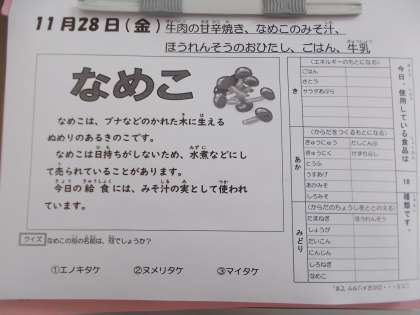 11月28日(金) 牛肉の甘辛焼き、なめこのみそ汁、
ほうれんそうのおひたし、ごはん、牛乳
なめこ
なめこは、ブナなどのかれた木に生える
ぬめりのあるきのこです。
なめこは日持ちがしないため、水煮などにし
て売られていることがあります。
今日の給食には、みそ汁の実として使われ
ています。
クイズ なめこの別の名前は、何でしょうか？
①エノキタケ ②ヌメリタケ ③マイタケ
今日、使用している食品は 18 種類です。
き
(エネルギーのもとになる)
ごはん
さとう
サラダあぶら
あか
(からだをつくるもとになる)
ぎゅうにゅう だしこんぶ
ぎゅうにく けずりぶし
とうふ
うすあげ
あかみそ
しろみそ
みどり
(からだのちょうしをととのえる)
たまねぎ ほうれんそう
しょうが
だいこん
にんじん
しろねぎ
なめこ